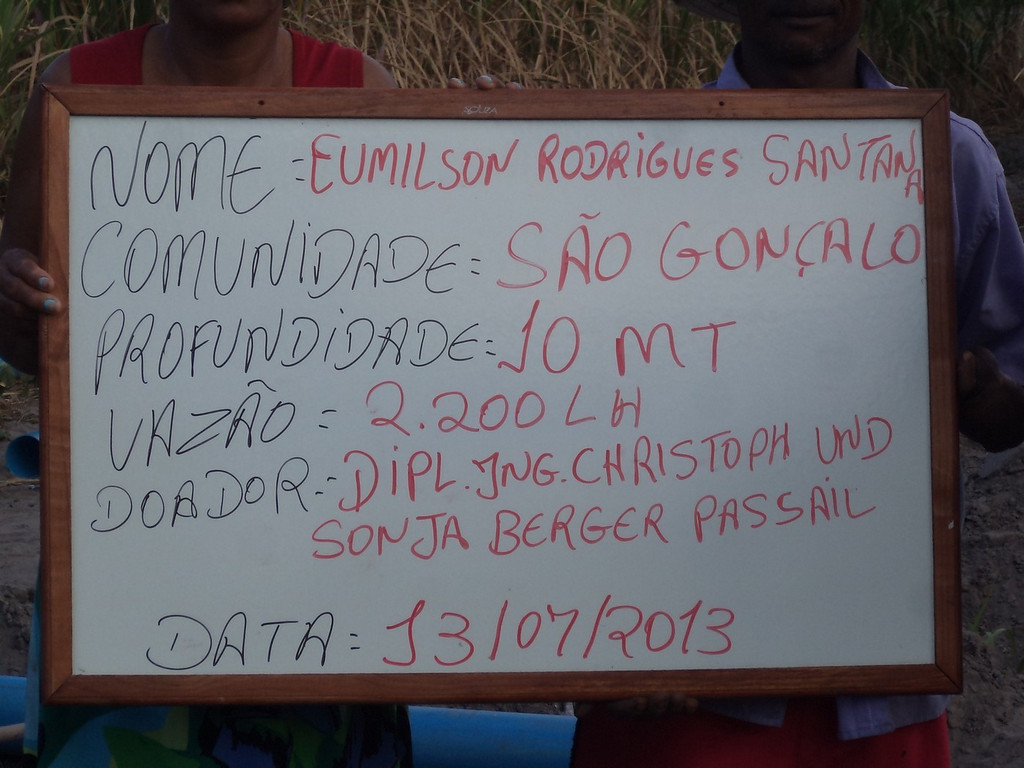 NOME = EUMILSON RODRIGUES SANTANA
COMUNIDADE = SÃO GONÇALO
PROFUNDIDADE = 10 MT
VAZÃO = 2.200 LH
DOADOR = DIPL. ING. CHRISTOPH UND
SONJA BERGER PASSAIL
DATA = 13/07/2013